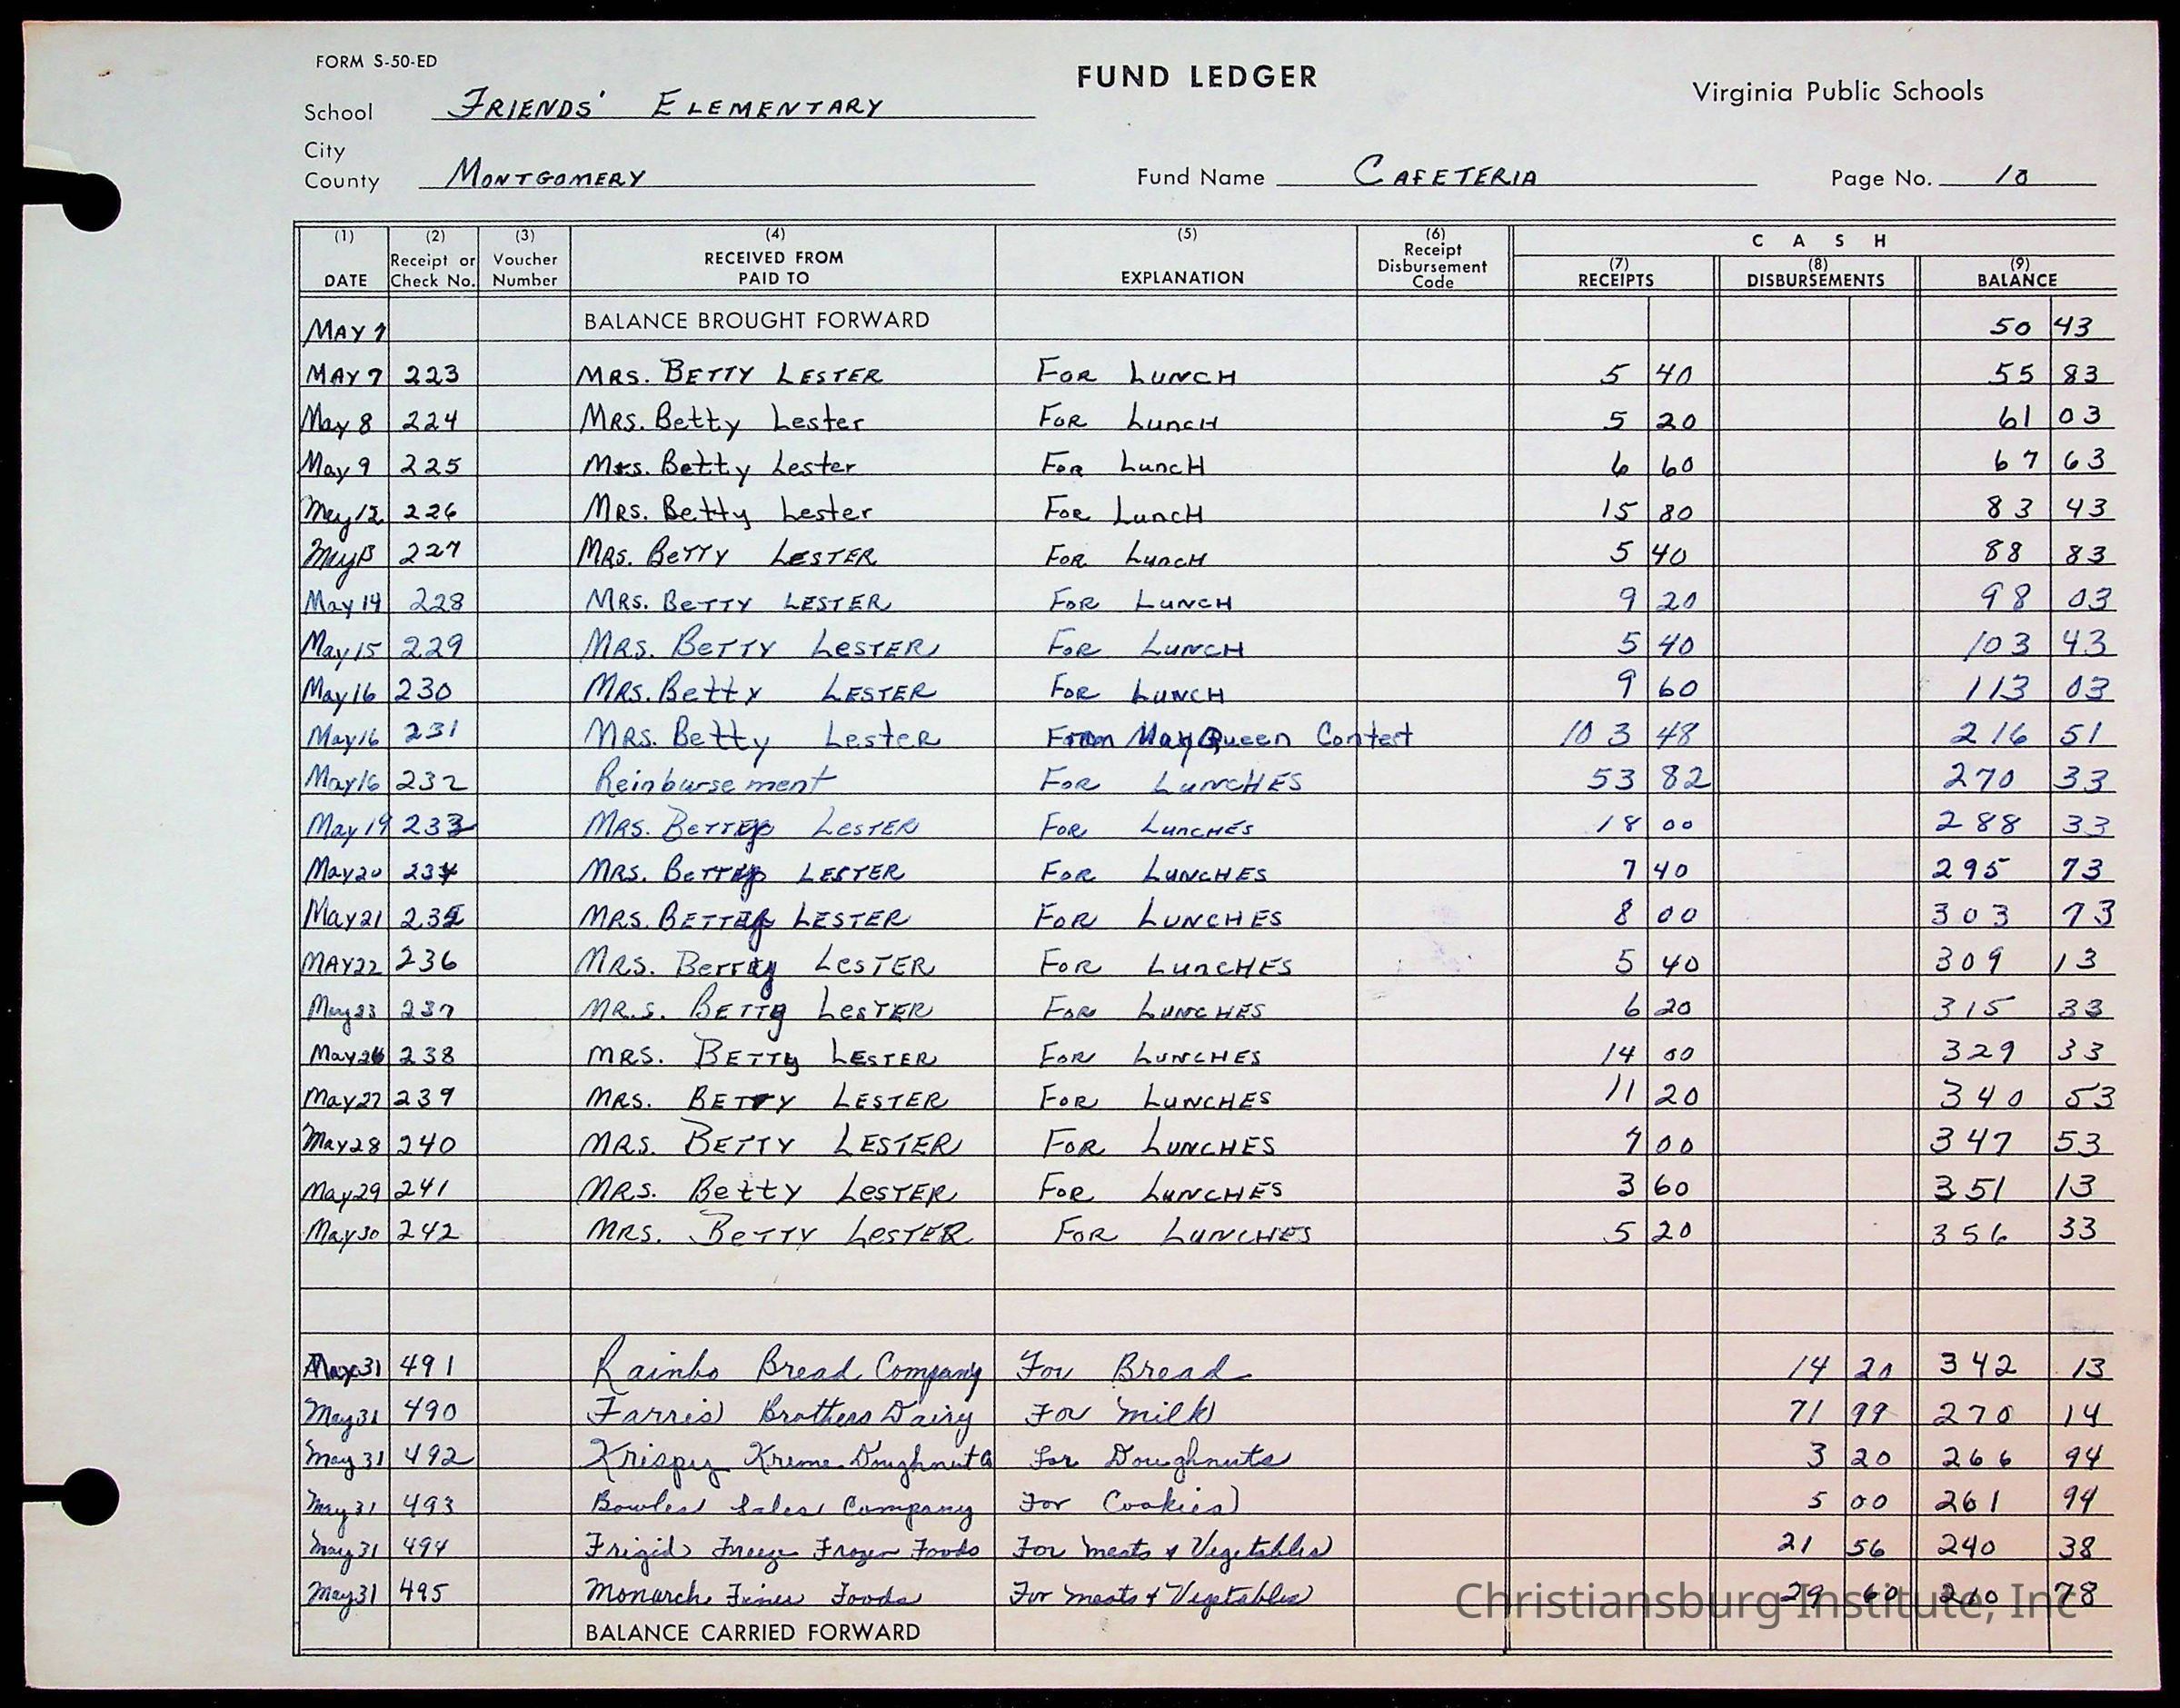 FORM S-50-ED
FUND LEDGER
Virginia Public Schools
School FRIENDS' ELEMENTARY
City
County MONTGOMERY Fund Name CAFETERIA Page No. 10
(1) DATE (2) Receipt or Check No. (3) Voucher Number (4) RECEIVED FROM PAID TO (5) EXPLANATION (6) Receipt Disbursement Code CASH (7) RECEIPTS (8) DISBURSEMENTS (9) BALANCE
MAY 7 BALANCE BROUGHT FORWARD 50 43
MAY 7 223 MRS. BETTY LESTER FOR LUNCH 5 40 55 83
May 8 224 MRS. Betty Lester FOR LuncH 5 20 61 03
May 9 225 Mrs. Betty Lester FoR LuncH 6 60 67 63
May 12 226 MRS. Betty Lester FOR LuncH 15 80 83 43
May 13 227 MRS. BeTTY LESTER FOR LuncH 5 40 88 83
May 14 228 MRS. BeTTY LESTER FOR LUNCH 9 20 98 03
May 15 229 MRS. BeTTY LeSTER FOR LUNCH 5 40 103 43
May 16 230 MRS. Betty LESTER FOR LUNCH 9 60 113 03
May 16 231 MRS. Betty LesteR From May Queen Contest 103 48 216 51
May 16 232 Reinbursement FOR LuncHES 53 82 270 33
May 19 233 MRS. BeTTy LeSTER FOR LuncHES 18 00 288 33
May 20 234 MRS. BeTTy LESTER FOR LUNCHES 7 40 295 73
May 21 235 MRS. BETTy LESTER FOR LUNCHES 8 00 303 73
MAY 22 236 MRS. BeTTy LeSTER FOR LuncHES 5 40 309 13
May 23 237 MR.S. BETTy LesTER FOR LUNCHES 6 20 315 33
May 26 238 MRS. BETTy LESTER FOR LUNCHES 14 00 329 33
May 27 239 MRS. BETTY LESTER FOR LUNCHES 11 20 340 53
May 28 240 MRS. BETTY LESTER FOR LUNCHES 7 00 347 53
May 29 241 MRS. Betty LeSTER FOR LUNCHES 3 60 351 13
May 30 242 MRS. BeTTY LeSTER FOR LUNCHES 5 20 356 33
May 31 491 Rainbo Bread Company For Bread 14 20 342 13
May 31 490 Farris Brothers Dairy For milk 71 99 270 14
May 31 492 Krispy Kreme Doughnut Co For Doughnuts 3 20 266 94
May 31 493 Bowles Sales Company For Cookies 5 00 261 94
May 31 494 Frigid Freeze Frozen Foods For meats & Vegetables 21 56 240 38
May 31 495 Monarch Finer Foods For meats & Vegetables 29 60 210 78
BALANCE CARRIED FORWARD
Christiansburg Institute, Inc